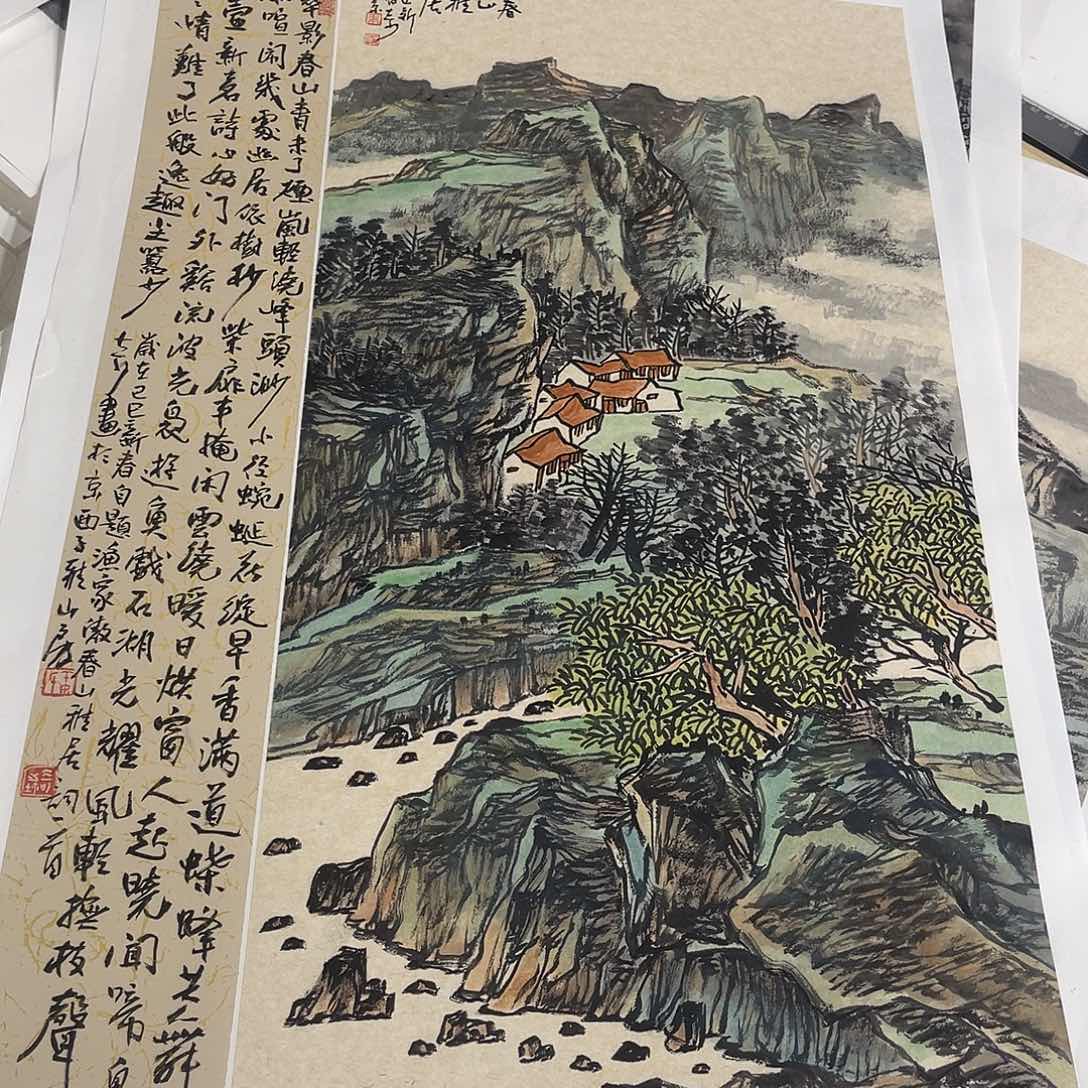 春
居
新
翠影春山青未了煙嵐輕繞峰頭渺小徑蜿蜒花綻早香滿道蝶蜂共舞
喧闹幾處幽居依樹杪柴扉半掩闲雲繞暖日烘窗人起曉闻啼鳥
新茗詩心妙门外谿流波光裊遊魚戲石湖光耀風輕撫枝聲
情難了此般逸趣尘嚣少
歲在乙巳新春自題漁家傲春山雅居詞一首
畫於京西子雅山房